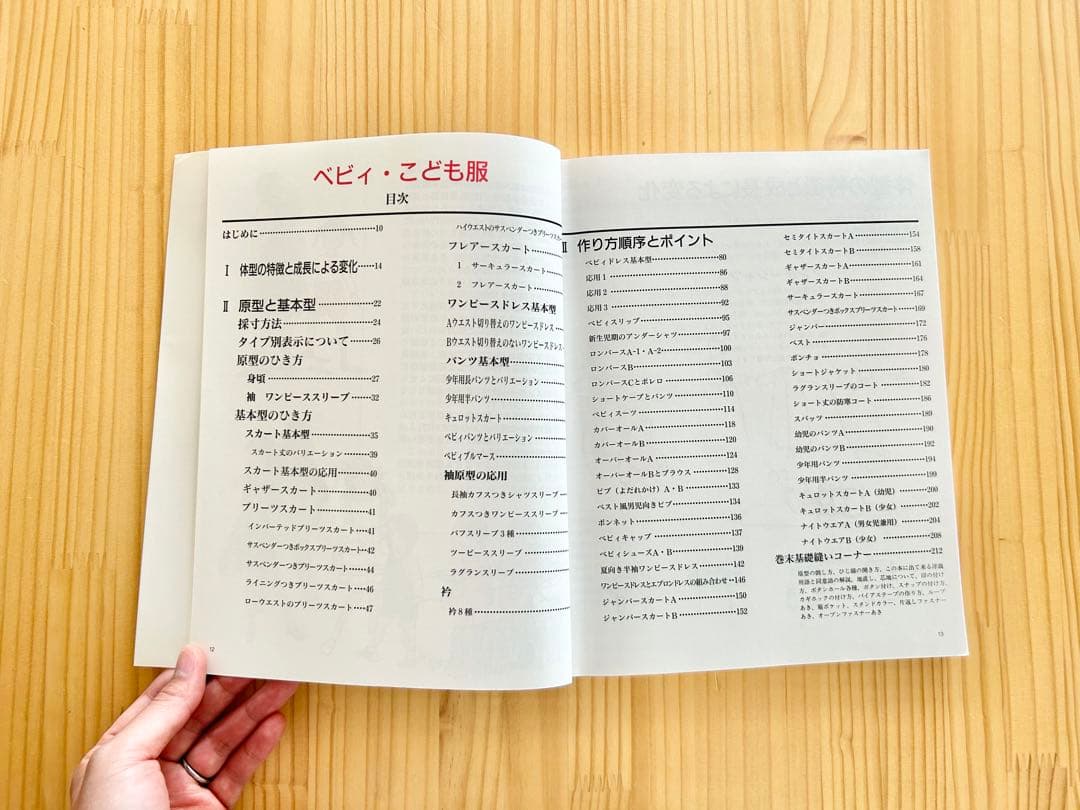 ベビィ・こども服
目次
はじめに…………10
Ⅰ 体型の特徴と成長による変化……14
Ⅱ 原型と基本型…………22
採寸方法…………24
タイプ別表示について……26
原型のひき方
身頃…………27
袖 ワンピーススリーブ……32
基本型のひき方
スカート基本型…………35
スカート丈のバリエーション………39
スカート基本型の応用………40
ギャザースカート…………40
プリーツスカート…………41
インバーテッドプリーツスカート……41
サスペンダーつきボックスプリーツスカート……42
サスペンダーつきプリーツスカート……44
ライニングつきプリーツスカート……46
ローウエストのプリーツスカート……47
ハイウエストのサスペンダーつきプリーツスカ
フレアースカート…………
1 サーキュラースカート………
2 フレアースカート…………
ワンピースドレス基本型
Aウエスト切り替えのワンピースドレス……
Bウエスト切り替えのないワンピースドレス…
パンツ基本型…………
少年用長パンツとバリエーション………
少年用半パンツ…………
キュロットスカート…………
ベビィパンツとバリエーション………
ベビィブルマース…………
袖原型の応用
長袖カフスつきシャツスリーブ……
カフスつきワンピーススリーブ……
パフスリーブ3種…………
ツーピーススリーブ…………
ラグランスリーブ…………
衿
衿8種…………
12
Ⅲ 作り方順序とポイント
ベビィドレス基本型…………80
応用1…………86
応用2…………88
応用3…………92
ベビィスリップ…………95
新生児期のアンダーシャツ………97
ロンパースA-1・A-2…………100
ロンパースB…………103
ロンパースCとボレロ…………106
ショートケープとパンツ…………110
ベビィスーツ…………114
カバーオールA…………118
カバーオールB…………120
オーバーオールA…………124
オーバーオールBとブラウス………128
ビブ(よだれかけ)A・B…………133
ベスト風男児向きビブ…………134
ボンネット…………136
ベビィキャップ…………137
ベビィシューズA・B…………139
夏向き半袖ワンピースドレス………142
ワンピースドレスとエプロンドレスの組み合わせ…146
ジャンパースカートA…………150
ジャンパースカートB…………152
セミタイトスカートA…………154
セミタイトスカートB…………158
ギャザースカートA…………161
ギャザースカートB…………164
サーキュラースカート…………167
サスペンダーつきボックスプリーツスカート……169
ジャンパー…………172
ベスト…………176
ポンチョ…………178
ショートジャケット…………180
ラグランスリーブのコート………182
ショート丈の防寒コート…………186
スパッツ…………189
幼児のパンツA…………190
幼児のパンツB…………192
少年用パンツ…………194
少年用半パンツ…………199
キュロットスカートA(幼児)………200
キュロットスカートB(少女)………202
ナイトウエアA(男女児兼用)………204
ナイトウエアB(少女)…………208
巻末基礎縫いコーナー…………212
原型の写し方、ひじ線の開き方、この本に出て来る洋裁
用語と同意語の解説、地直し、芯地について、印の付け
方、ボタンホール各種、ボタン付け、スナップの付け方、
カギホックの付け方、バイアステープの作り方、ループ
あき、脇ポケット、スタンドカラー、片返しファスナー
あき、オープンファスナーあき
13